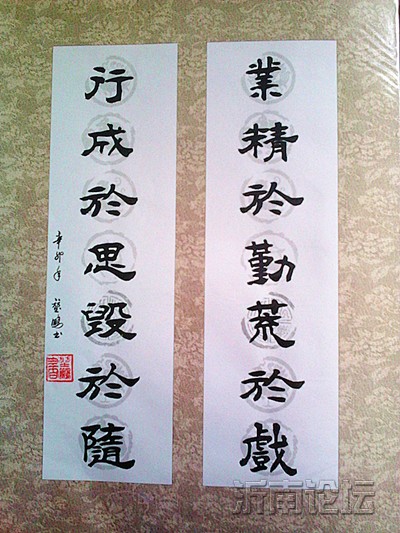 業精於勤荒於戲
行成於思毀於隨
辛卯年
书
沂南论坛